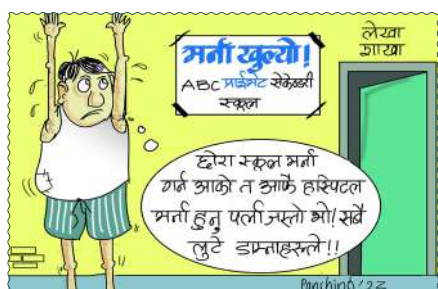 भर्ना खुल्यो!
ABC प्राईभेट सेकेण्डरी
स्कूल
लेखा
शाखा
छोरा स्कूल भर्ना
गर्न आको त आफै हस्पिटल
भर्ना हुनु पर्ला जस्तो भो! सबै
लुटे डाम्नाहरुले!!